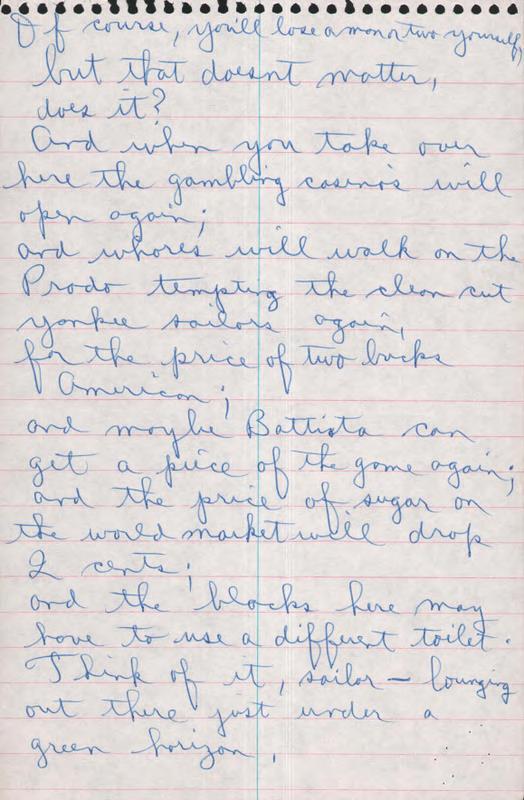 Of course, you'll lose a man or two yourself,
but that doesnt matter,
does it?
And when you take over
here the gambling casinos will
open again;
and whores will walk on the
Prado tempting the clean cut
yankee sailors again,
for the price of two bucks
American;
and maybe Battista can
get a piece of the game again;
and the price of sugar on
the world market will drop
2 cents;
and the blacks here may
have to use a different toilet.
Think of it, sailor – lounging
out there just under a
green horizon,